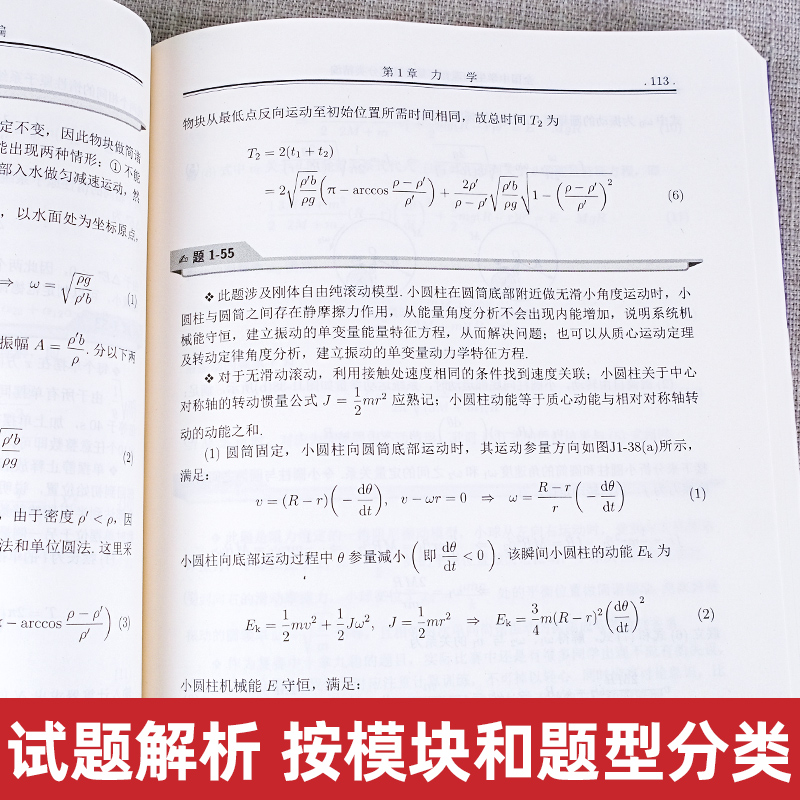 编
定不变，因此物块做简谐
能出现两种情形：①不能
部入水做匀减速运动，然
，以水面处为坐标原点，
⇒ ω = √(ρg/ρ′b) (1)
振幅 A = ρ′b/ρ. 分以下两
ρ′b/ρg (2)
，由于密度 ρ′ < ρ，因
法和单位圆法. 这里采
− arccos (ρ − ρ′)/ρ′) (3)
第 1 章 力 学 · 113 ·
物块从最低点反向运动至初始位置所需时间相同，故总时间 T₂ 为
T₂ = 2(t₁ + t₂)
= 2√(ρ′b/ρg) (π − arccos (ρ − ρ′)/ρ′) + 2ρ′/(ρ − ρ′) √(ρ′b/ρg) √(1 − ((ρ − ρ′)/ρ′)²) (6)
题 1-55
❖ 此题涉及刚体自由纯滚动模型. 小圆柱在圆筒底部附近做无滑小角度运动时，小
圆柱与圆筒之间存在静摩擦力作用，从能量角度分析不会出现内能增加，说明系统机
械能守恒，建立振动的单变量能量特征方程，从而解决问题；也可以从质心运动定理
及转动定律角度分析，建立振动的单变量动力学特征方程.
❖ 对于无滑动滚动，利用接触处速度相同的条件找到速度关联；小圆柱关于中心
对称轴的转动惯量公式 J = 1/2 mr² 应熟记；小圆柱动能等于质心动能与相对对称轴转
动的动能之和.
(1) 圆筒固定，小圆柱向圆筒底部运动时，其运动参量方向如图J1-38(a)所示，
满足：
v = (R − r)(−dθ/dt), v − ωr = 0 ⇒ ω = (R − r)/r (−dθ/dt) (1)
小圆柱向底部运动过程中 θ 参量减小 (即 dθ/dt < 0). 该瞬间小圆柱的动能 Eₖ 为
Eₖ = 1/2 mv² + 1/2 Jω², J = 1/2 mr² ⇒ Eₖ = 3/4 m(R − r)² (dθ/dt)² (2)
小圆柱机械能 E 守恒，满足：
试题解析 按模块和题型分类